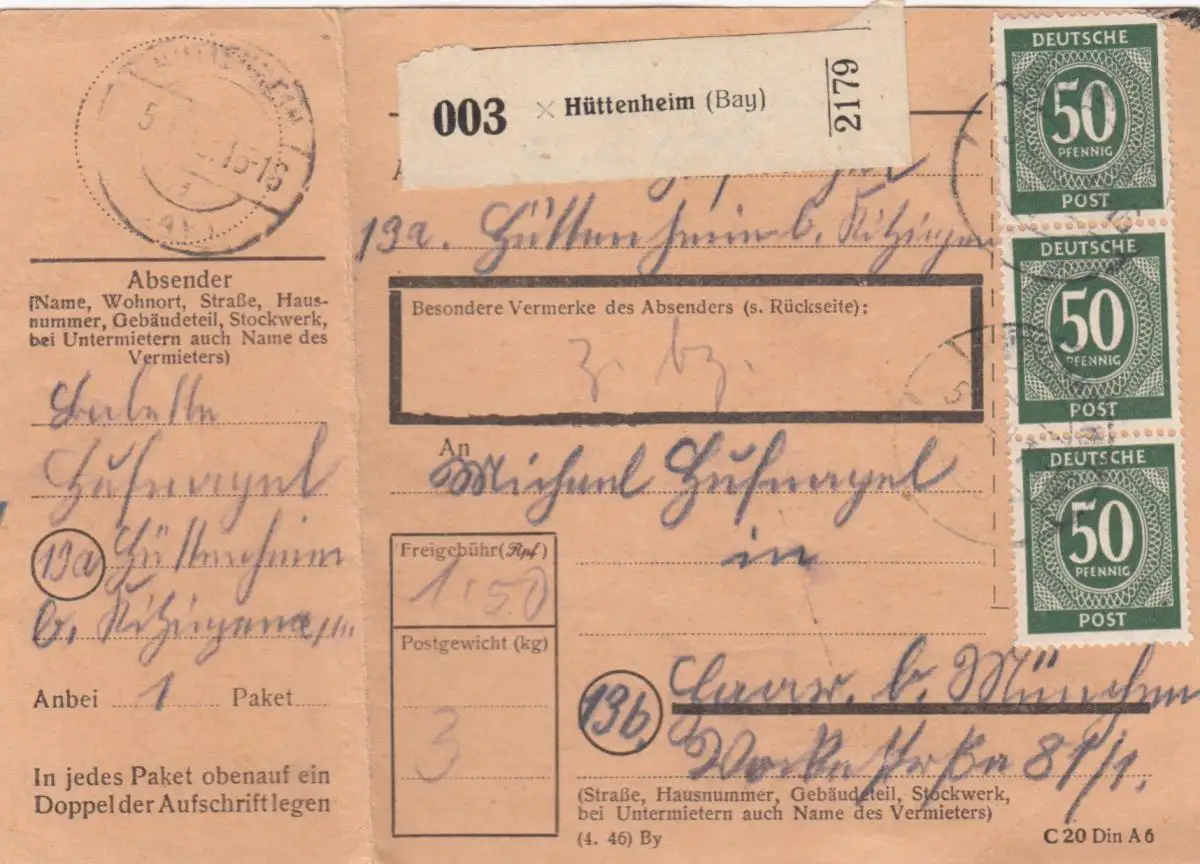 15-16
Absender
(Name, Wohnort, Straße, Haus-
nummer, Gebäudeteil, Stockwerk,
bei Untermietern auch Name des
Vermieters)
Babette
Hufnagel
13a Hüttenheim
b. Kitzingen
Anbei 1 Paket
In jedes Paket obenauf ein
Doppel der Aufschrift legen
003 × Hüttenheim (Bay) 2179
13a. Hüttenheim b. Kitzingen
Besondere Vermerke des Absenders (s. Rückseite):
An
Michael Hufnagel
in
Freigebühr (Rpf)
1.50
Postgewicht (kg)
3
13b. Haar. b. München
81/1.
(Straße, Hausnummer, Gebäudeteil, Stockwerk,
bei Untermietern auch Name des Vermieters)
(4. 46) By
C 20 Din A 6
DEUTSCHE
50
PFENNIG
POST
DEUTSCHE
50
PFENNIG
POST
DEUTSCHE
50
PFENNIG
POST